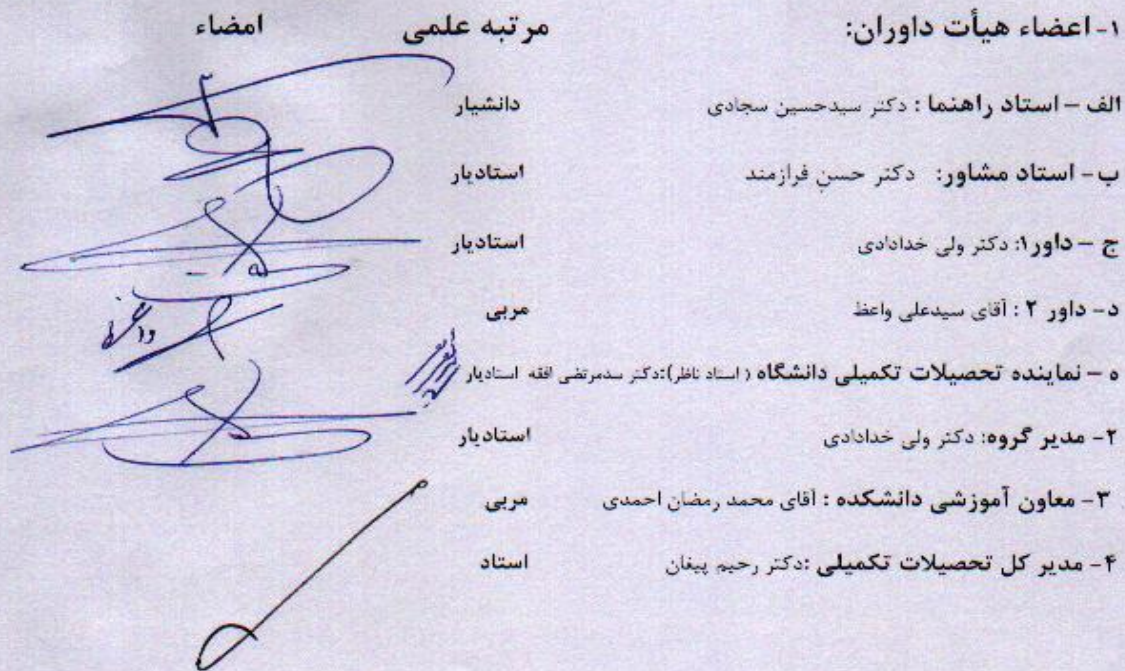 ۱- اعضاء هیأت داوران: مرتبه علمی امضاء
الف – استاد راهنما : دکتر سیدحسین سجادی دانشیار
ب- استاد مشاور: دکتر حسن فرازمند استادیار
ج – داور۱: دکتر ولی خدادادی استادیار
د- داور ۲ : آقای سیدعلی واعظ مربی
ه – نماینده تحصیلات تکمیلی دانشگاه ( استاد ناظر):دکتر سدمرتضی افقه استادیار
۲- مدیر گروه: دکتر ولی خدادادی استادیار
۳- معاون آموزشی دانشکده : آقای محمد رمضان احمدی مربی
۴- مدیر کل تحصیلات تکمیلی :دکتر رحیم پیغان استاد